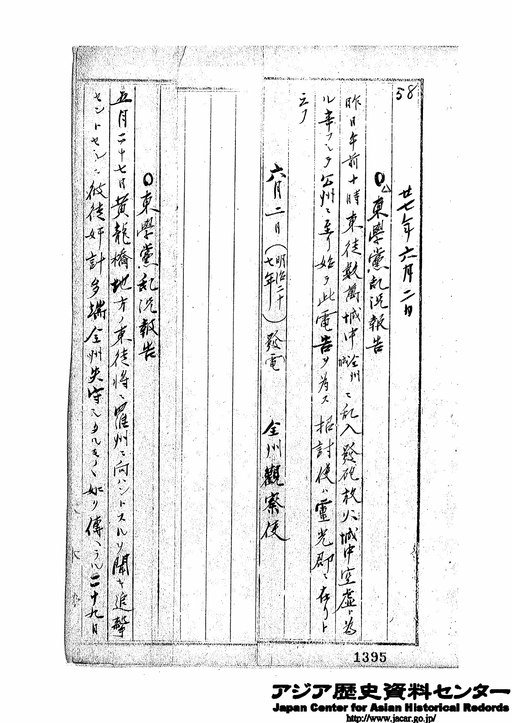 58
廿七年六月二日
○東學黨乱况報告
昨日午前十時東徒数萬城中全州城ニ乱入發砲放火城中空虚ト為
ル幸フシテ公州ニ至リ始テ此電告ヲ為ス招討使ハ靈光郡ニ在リト
云フ
六月二日(明治二十七年)發電 全州觀察使
○東學黨乱况報告
五月二十七日黄龍橋地方ノ東徒将ニ羅州ニ向ハントスルヲ聞キ追擊
セントセシニ彼徒奸計多端全州失守シタルモノヽ如ク傳ヘラル二十九日
1395
アジア歴史資料センター
Japan Center for Asian Historical Records
http://www.jacar.go.jp/